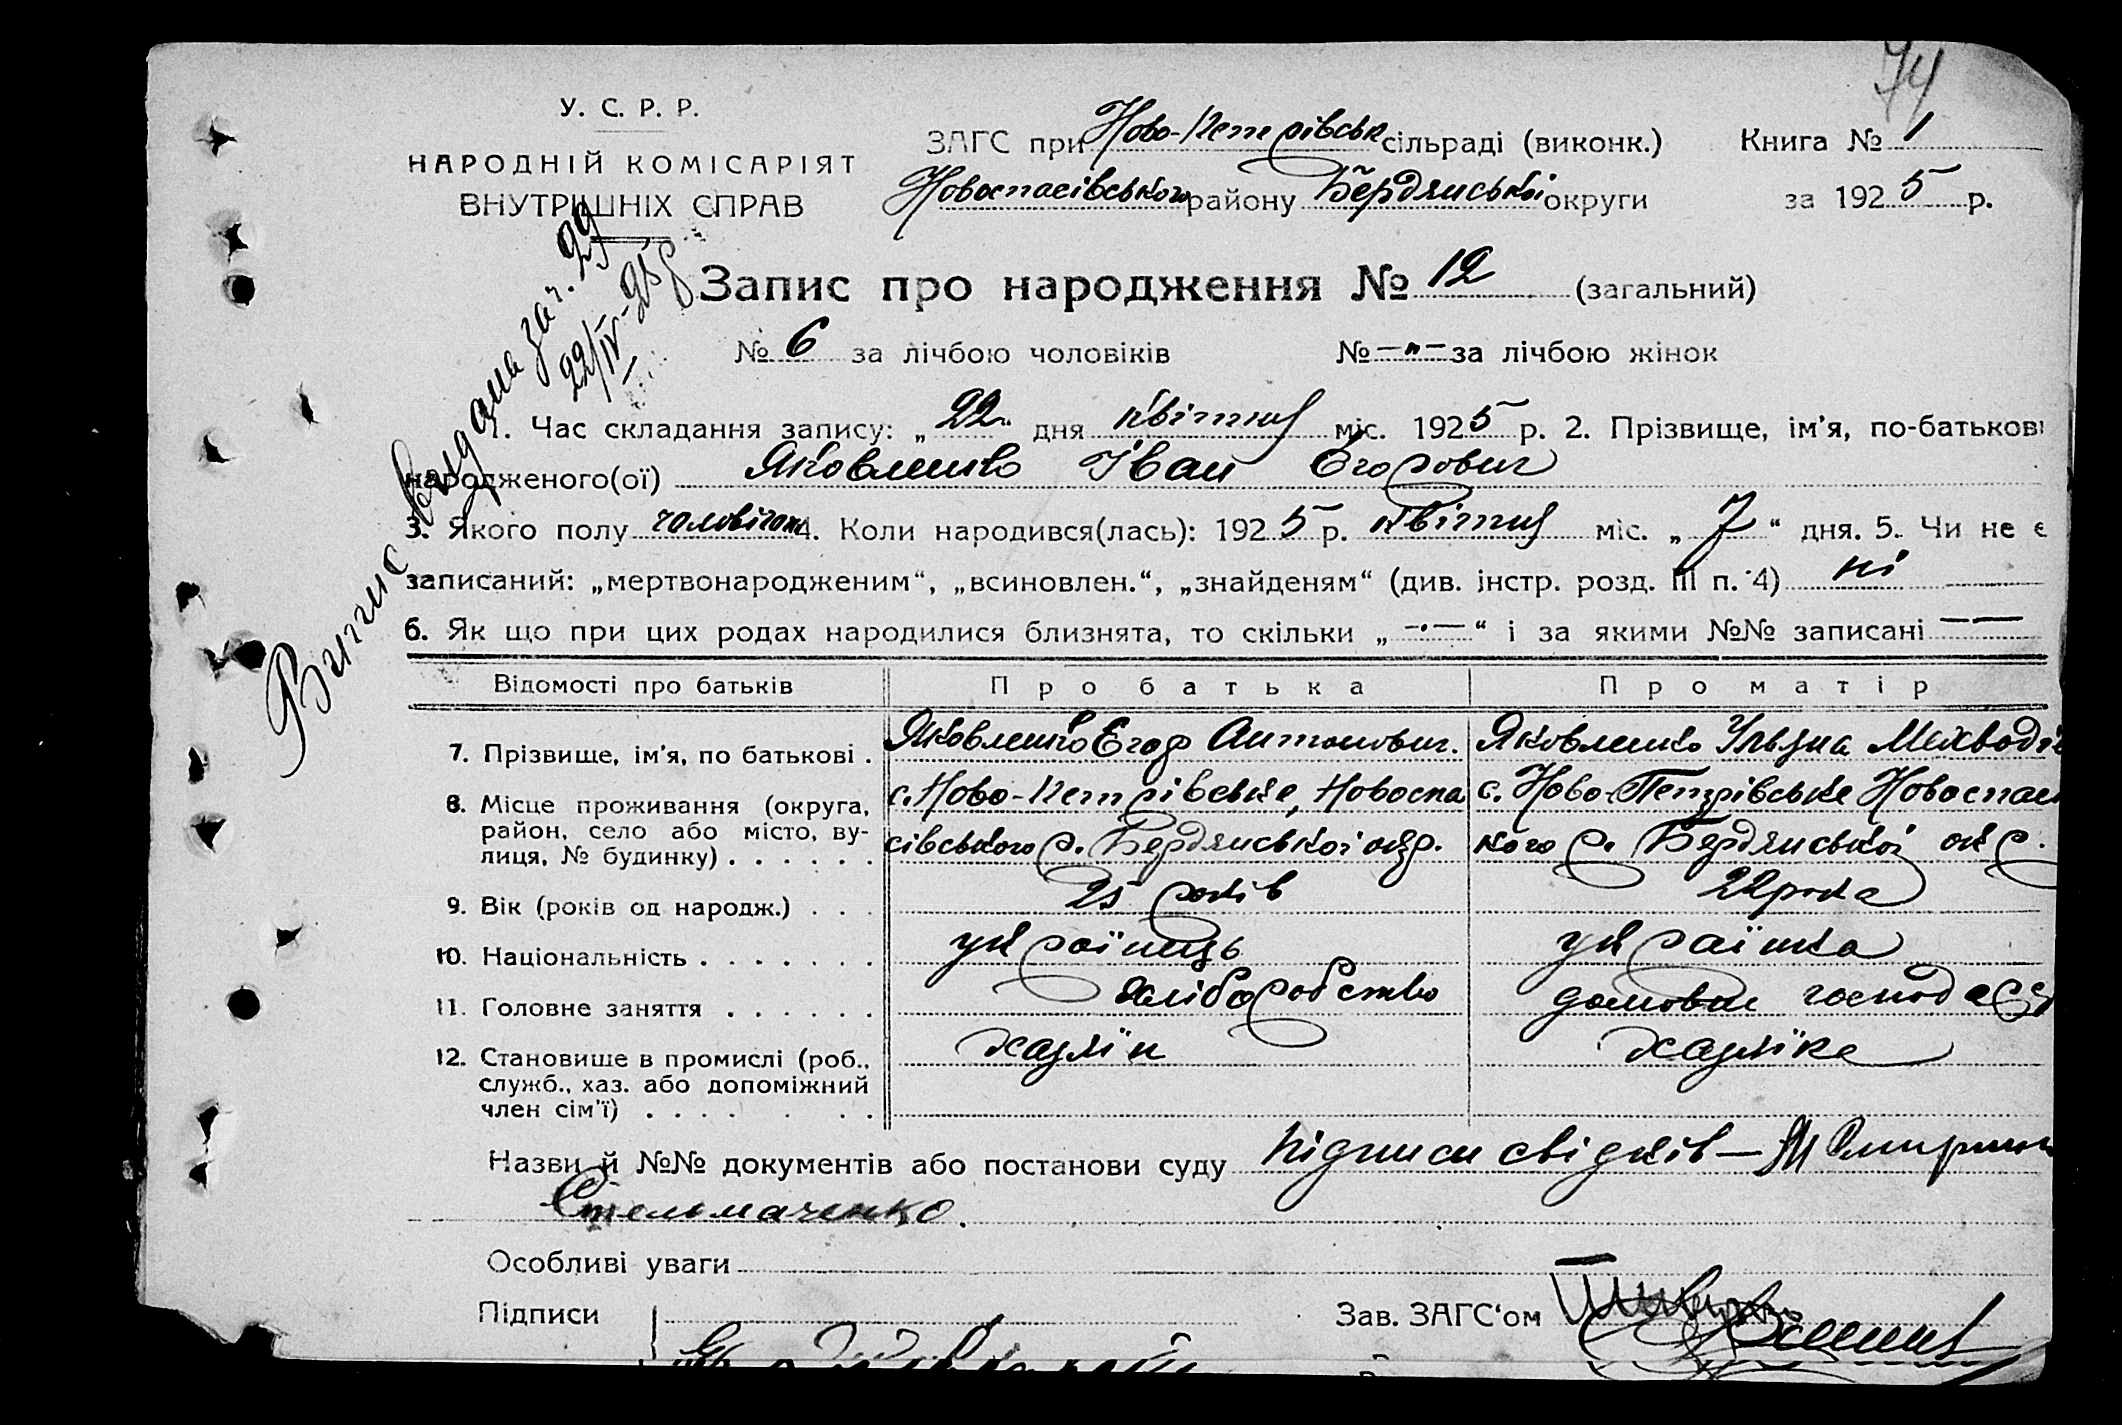 74
У. С. Р. Р.
НАРОДНІЙ КОМІСАРІЯТ
ВНУТРІШНІХ СПРАВ
ЗАГС при Ново-Петрівськ сільраді (виконк.) Книга № 1
Новоспасівського району Бердянської округи за 1925 р.
Випис видана за ч. 29
22/IV-25 р
Запис про народження № 12 (загальний)
№ 6 за лічбою чоловіків № -"- за лічбою жінок
1. Час складання запису: „22" дня квітня міс. 1925 р. 2. Прізвище, ім'я, по-батькові
народженого(ої) Яковленко Іван Єгорович
3. Якого полу чоловічої 4. Коли народився(лась): 1925 р. квітня міс. „7" дня. 5. Чи не є
записаний: „мертвонародженим", „всиновлен.", „знайденям" (див. інстр. розд. III п. 4) ні
6. Як що при цих родах народилися близнята, то скільки „-·-" і за якими №№ записані — —
Відомості про батьків Про батька Про матір
7. Прізвище, ім'я, по батькові . Яковленко Єгор Антонович. Яковленко Ульяна
8. Місце проживання (округа, с. Ново-Петрівське, Новоспа с. Ново-Петрівське Новоспасі
район, село або місто, ву- сівського р. Бердянської окр. кого р. Бердянської окр.
лиця, № будинку) . . . . . .
9. Вік (років од народж.) . . . 25 років 22 рока
10. Національність . . . . . . . українець українка
11. Головне заняття . . . . . . хліборобство домовне господар
12. Становище в промислі (роб., хазяїн хазяїка
служб., хаз. або допоміжний
член сім'ї) . . . . . . .
Назви й №№ документів або постанови суду Підписи свідків —
Стельмаченко.
Особливі уваги —
Підписи Зав. ЗАГС'ом